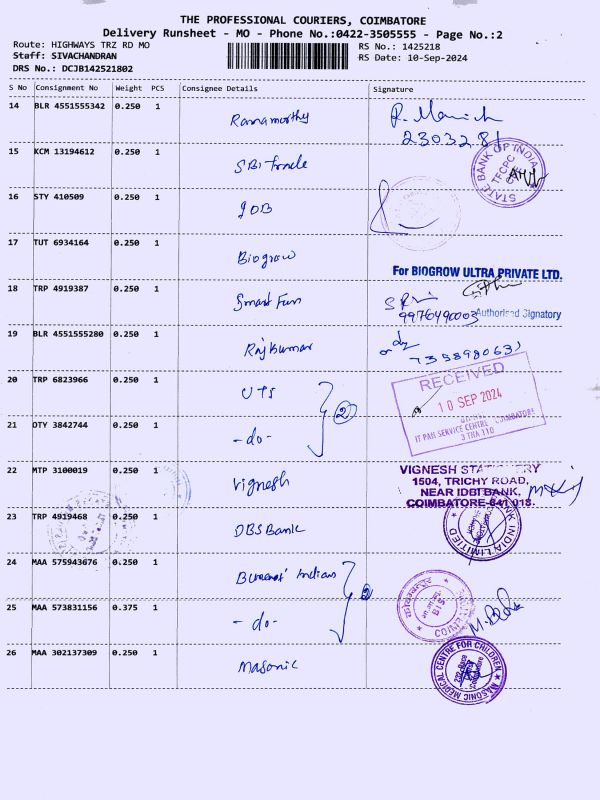 THE PROFESSIONAL COURIERS, COIMBATORE
Delivery Runsheet - MO - Phone No.:0422-3505555 - Page No.:2
Route: HIGHWAYS TRZ RD MO
RS No.: 1425218
Staff: SIVACHANDRAN
RS Date: 10-Sep-2024
DRS No.: DCJB142521802
S No Consignment No Weight PCS Consignee Details Signature
14 BLR 4551555342 0.250 1 Ramamorthy
2303281
15 KCM 13194612 0.250 1 SBI Trade
STATE BANK OF INDIA
TFCPC
16 STY 410509 0.250 1 IOB
17 TUT 6934164 0.250 1 Biogrow
For BIOGROW ULTRA PRIVATE LTD.
Authorised Signatory
18 TRP 4919387 0.250 1 Smart Fun
19 BLR 4551555280 0.250 1 Rajkumar
20 TRP 6823966 0.250 1 UTS
RECEIVED
10 SEP 2024
IT PAN SERVICE CENTRE COIMBATORE
21 OTY 3842744 0.250 1 -do- 2
22 MTP 3100019 0.250 1 Vignesh
VIGNESH STATIONERY
1504, TRICHY ROAD,
NEAR IDBI BANK,
COIMBATORE-641 018.
23 TRP 4919468 0.250 1 DBS Bank
BANK INDIA LIMITED
24 MAA 575943676 0.250 1 Indian
BIS
25 MAA 573831156 0.375 1 -do- 2
26 MAA 302137309 0.250 1 Masonic
MASONIC MEDICAL CENTRE FOR CHILDREN